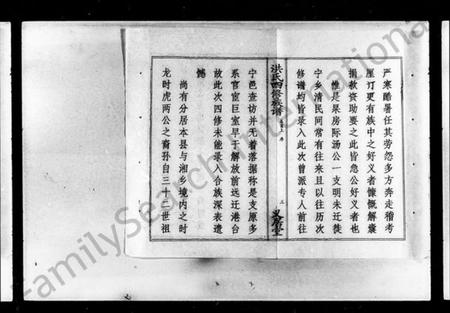 严寒酷暑任其劳怨多方奔走稽考
厘订更有族中之好义者慷慨解囊
捐款资助要之此皆急公好义者也
惟是果房际汤公一支明末迁徙
宁乡清民间常有往来且以往历次
修谱均皆录入此次曾派专人前往
洪氏四修族谱
卷之上
二
义居堂
宁邑查访并无着落据称是支原多
系官宦巨室早于解放前远迁港台
故此次四修未能录入合族深表遗
憾
尚有分居本县与湘乡境内之时
龙时虎两公之裔孙自三十二世祖
FamilySearch International